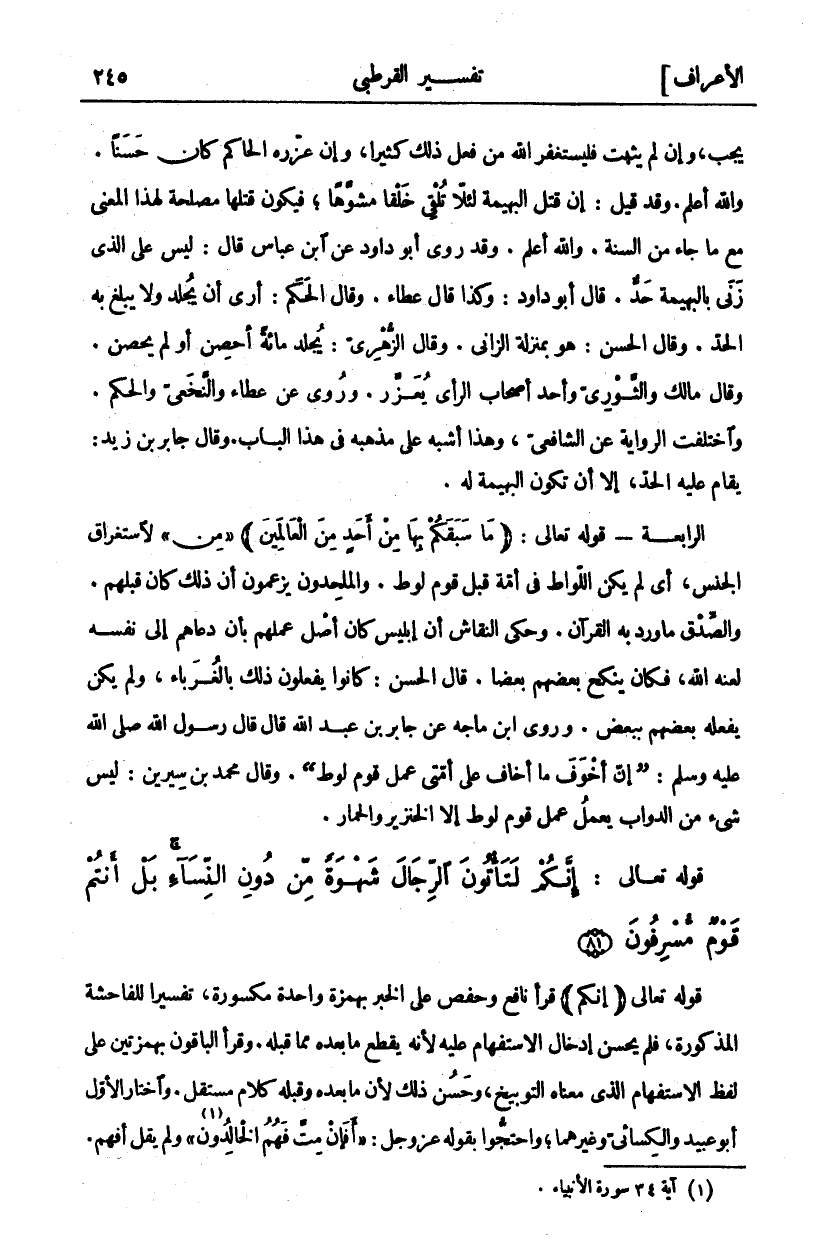 الأعراف] تفسير القرطبى ٢٤٥
يجب، وإن لم يثبت فليستغفر الله من فعل ذلك كثيرا، وإن عزّره الحاكم كان حَسَنًا .
والله أعلم. وقد قيل : إن قتل البهيمة لئلّا تُلْقِى خَلْقا مشوَّهًا ؛ فيكون قتلها مصلحة لهذا المعنى
مع ما جاء من السنة . والله أعلم . وقد روى أبو داود عن آبن عباس قال : ليس على الذى
زَنَى بالبهيمة حَدٌّ . قال أبو داود : وكذا قال عطاء . وقال الحَكَم : أرى أن يُجلد ولا يبلغ به
الحدّ . وقال الحسن : هو بمنزلة الزانى . وقال الزُّهْرِىّ : يُجلد مائةً أحصِن أو لم يحصن .
وقال مالك والثَّوْرِىّ وأحد أصحاب الرأى يُعَزَّر . ورُوى عن عطاء والنَّخَعىّ والحكم .
وآختلفت الرواية عن الشافعىّ ، وهذا أشبه على مذهبه فى هذا الباب. وقال جابر بن زيد :
يقام عليه الحدّ، إلا أن تكون البهيمة له .
الرابعة — قوله تعالى : ﴿ مَا سَبَقَكُمْ بِهَا مِنْ أَحَدٍ مِنَ الْعَالَمِينَ ﴾ «مِن» لآستغراق
الجنس، أى لم يكن اللّواط فى أمّة قبل قوم لوط . والملحدون يزعمون أن ذلك كان قبلهم .
والصِّدْق ماورد به القرآن . وحكى النقاش أن إبليس كان أصْل عملهم بأن دعاهم إلى نفسه
لعنه الله، فكان ينكح بعضهم بعضا . قال الحسن : كانوا يفعلون ذلك بالغُرَباء ، ولم يكن
يفعله بعضهم ببعض . وروى ابن ماجه عن جابر بن عبد الله قال قال رسول الله صلى الله
عليه وسلم : ”إنّ أخْوَفَ ما أخاف على أمّتى عمل قوم لوط“ . وقال محمد بن سيرين : ليس
شىء من الدواب يعملُ عمل قوم لوط إلا الخنزير والحمار .
قوله تعالى : إِنَّكُمْ لَتَأْتُونَ ٱلرِّجَالَ شَهْوَةً مِّن دُونِ النِّسَآءِ ۚ بَلْ أَنتُمْ
قَوْمٌ مُّسْرِفُونَ ﴿٨١﴾
قوله تعالى ﴿ إنكم ﴾ قرأ نافع وحفص على الخبر بهمزة واحدة مكسورة، تفسيرا للفاحشة
المذكورة، فلم يحسن إدخال الاستفهام عليه لأنه يقطع مابعده مما قبله. وقرأ الباقون بهمزتين على
لفظ الاستفهام الذى معناه التوبيخ، وحَسُن ذلك لأن مابعده وقبله كلام مستقل. وآختار الأوّل
أبو عبيد والكسائىّ وغيرهما ؛ واحتجُّوا بقوله عز وجل : «أَفَإِنْ مِتَّ فَهُمُ الْخَالِدُونَ» (١) ولم يقل أفهم.
(١) آية ٣٤ سورة الأنبياء .